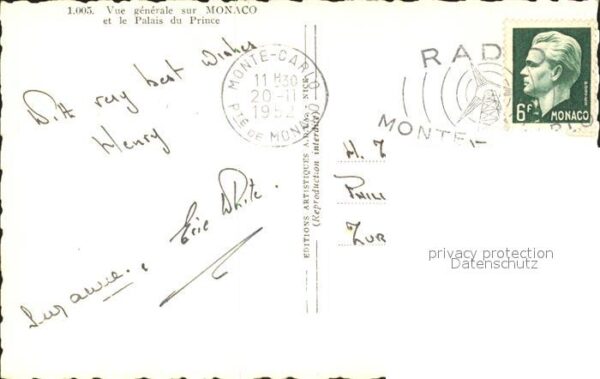 1.005. Vue générale sur MONACO
et le Palais du Prince
With very best wishes
Henry
Eric White.
Suzanne.
MONTE-CARLO
11 H30
20-11
1952
PTÉ DE MONACO
EDITIONS ARTISTIQUES
NICE
(Reproduction interdite)
RADIO
MONTE-CARLO
6F
MONACO
H. T
PHILI
ZUR
privacy protection
Datenschutz